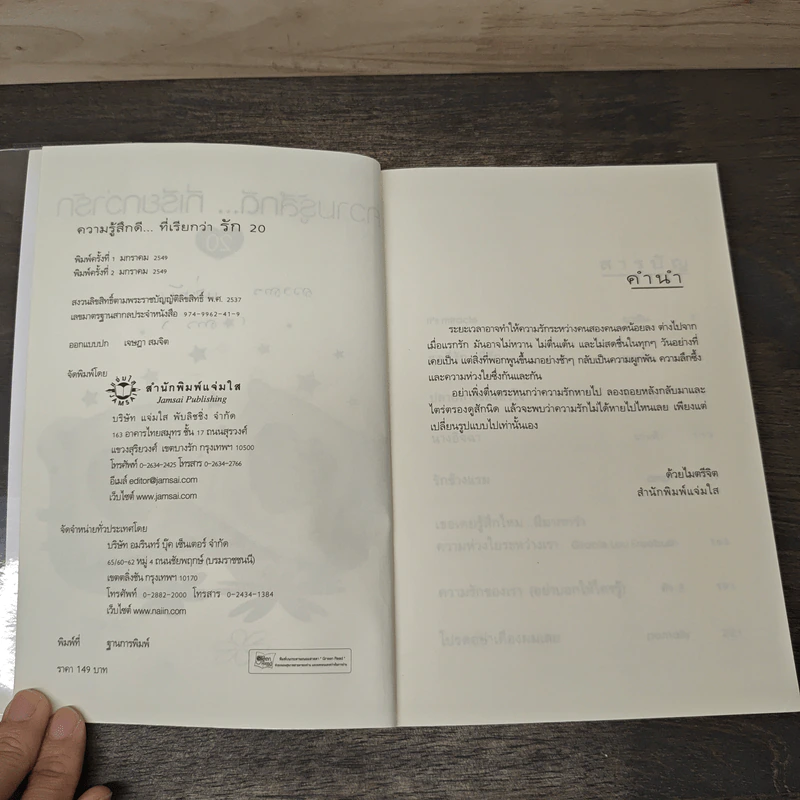 ความรู้สึกดี... ที่เรียกว่า รัก 20
พิมพ์ครั้งที่ 1 มกราคม 2549
พิมพ์ครั้งที่ 2 มกราคม 2549
สงวนลิขสิทธิ์ตามพระราชบัญญัติลิขสิทธิ์ พ.ศ. 2537
เลขมาตรฐานสากลประจำหนังสือ 974-9962-41-9
ออกแบบปก เจษฎา สมจิต
จัดพิมพ์โดย
JAMSAI
สำนักพิมพ์แจ่มใส
Jamsai Publishing
บริษัท แจ่มใส พับลิชชิ่ง จำกัด
163 อาคารไทยสมุทร ชั้น 17 ถนนสุรวงศ์
แขวงสุริยวงศ์ เขตบางรัก กรุงเทพฯ 10500
โทรศัพท์ 0-2634-2425 โทรสาร 0-2634-2766
อีเมล์ editor@jamsai.com
เว็บไซต์ www.jamsai.com
จัดจำหน่ายทั่วประเทศโดย
บริษัท อมรินทร์ บุ๊ค เซ็นเตอร์ จำกัด
65/60-62 หมู่ 4 ถนนชัยพฤกษ์ (บรมราชชนนี)
เขตตลิ่งชัน กรุงเทพฯ 10170
โทรศัพท์ 0-2882-2000 โทรสาร 0-2434-1384
เว็บไซต์ www.naiin.com
พิมพ์ที่ ฐานการพิมพ์
ราคา 149 บาท
คำนำ
ระยะเวลาอาจทำให้ความรักระหว่างคนสองคนลดน้อยลง ต่างไปจาก
เมื่อแรกรัก มันอาจไม่หวาน ไม่ตื่นเต้น และไม่สดชื่นในทุกๆ วันอย่างที่
เคยเป็น แต่สิ่งที่พอกพูนขึ้นมาอย่างช้าๆ กลับเป็นความผูกพัน ความลึกซึ้ง
และความห่วงใยซึ่งกันและกัน
อย่าเพิ่งตื่นตระหนกว่าความรักหายไป ลองถอยหลังกลับมาและ
ไตร่ตรองดูสักนิด แล้วจะพบว่าความรักไม่ได้หายไปไหนเลย เพียงแต่
เปลี่ยนรูปแบบไปเท่านั้นเอง
ด้วยไมตรีจิต
สำนักพิมพ์แจ่มใส